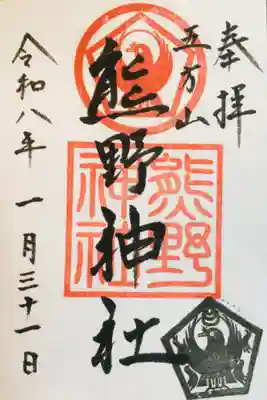 奉拝
五方山
熊野神社
熊野
神社
令和八年 一月三十一日